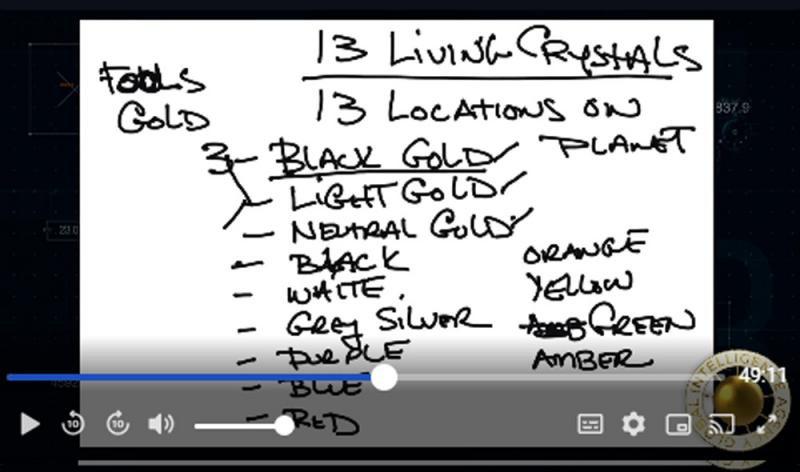 13 LIVING CRYSTALS
FOOLS
GOLD
13 LOCATIONS ON
PLANET
3 — BLACK GOLD ✓
— LIGHT GOLD ✓
— NEUTRAL GOLD ✓
— BLACK
— WHITE.
— GREY SILVER
— PURPLE
— BLUE
— RED
ORANGE
YELLOW
GREEN
AMBER
837.9
23.0
10
10
49:11
GLOBAL INTELLIGENCE AGENCY